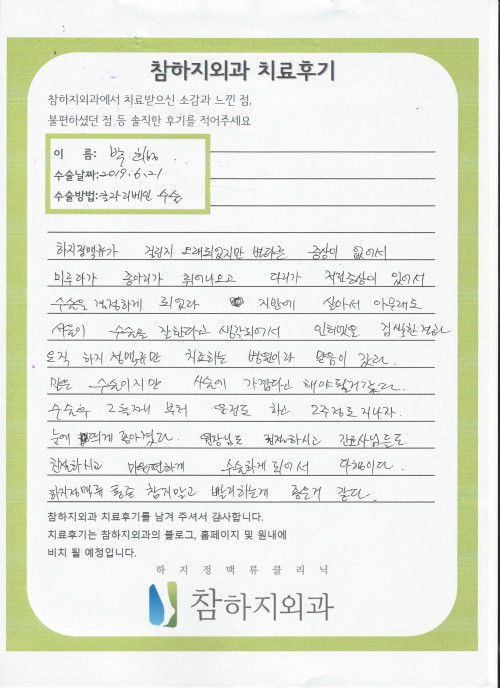 참하지외과 치료후기
참하지외과에서 치료받으신 소감과 느낀 점,
불편하셨던 점 등 솔직한 후기를 적어주세요
이 름: 박
수술날짜:2019.6.21
수술방법:클라리베인 수술
하지정맥류가 걸린지 오래되었지만 별다른 증상이 없어서
미루다가 종아리가 튀어나오고 다리가 저린증상이 있어서
수술을 결정하게 되었다 지방에 살아서 아무래도
서울이 수술을 잘한다고 생각되어서 인터넷으로 검색한결과
오직 하지정맥류만 치료하는 병원이라 믿음이 갔다.
말은 수술이지만 시술에 가깝다고 해야 될거같다.
수술후 2일째 부터 운전도 하고 2주정도 지나자.
눈에 띄게 좋아졌다. 원장님도 친절하시고 간호사님들도
친절하시고 마음편하게 수술하게 되어서 다행이다.
하지정맥류 참지말고 빨리하는게 좋은거 같다.
참하지외과 치료후기를 남겨 주셔서 감사합니다.
치료후기는 참하지외과의 블로그, 홈페이지 및 원내에
비치 될 예정입니다.
하지정맥류클리닉
참하지외과